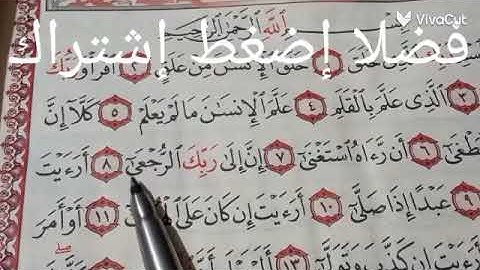 VivaCut
اللَّهِ الرَّحْمَٰنِ الرَّحِيمِ
فضلا إضغط إشتراك
خَلَقَ الْإِنسَٰنَ مِنْ عَلَقٍ ٢ اقْرَأْ وَرَبُّكَ
٣ الَّذِى عَلَّمَ بِالْقَلَمِ ٤ عَلَّمَ الْإِنسَٰنَ مَا لَمْ يَعْلَمْ ٥ كَلَّآ إِنَّ
٦ أَن رَّءَاهُ اسْتَغْنَىٰٓ ٧ إِنَّ إِلَىٰ رَبِّكَ الرُّجْعَىٰٓ ٨ أَرَءَيْتَ
٩ عَبْدًا إِذَا صَلَّىٰٓ ١٠ أَرَءَيْتَ إِن كَانَ عَلَى ١١ أَوْ أَمَرَ
إِن كَذَّبَ وَتَوَلَّىٰٓ ١٣ أَلَمْ